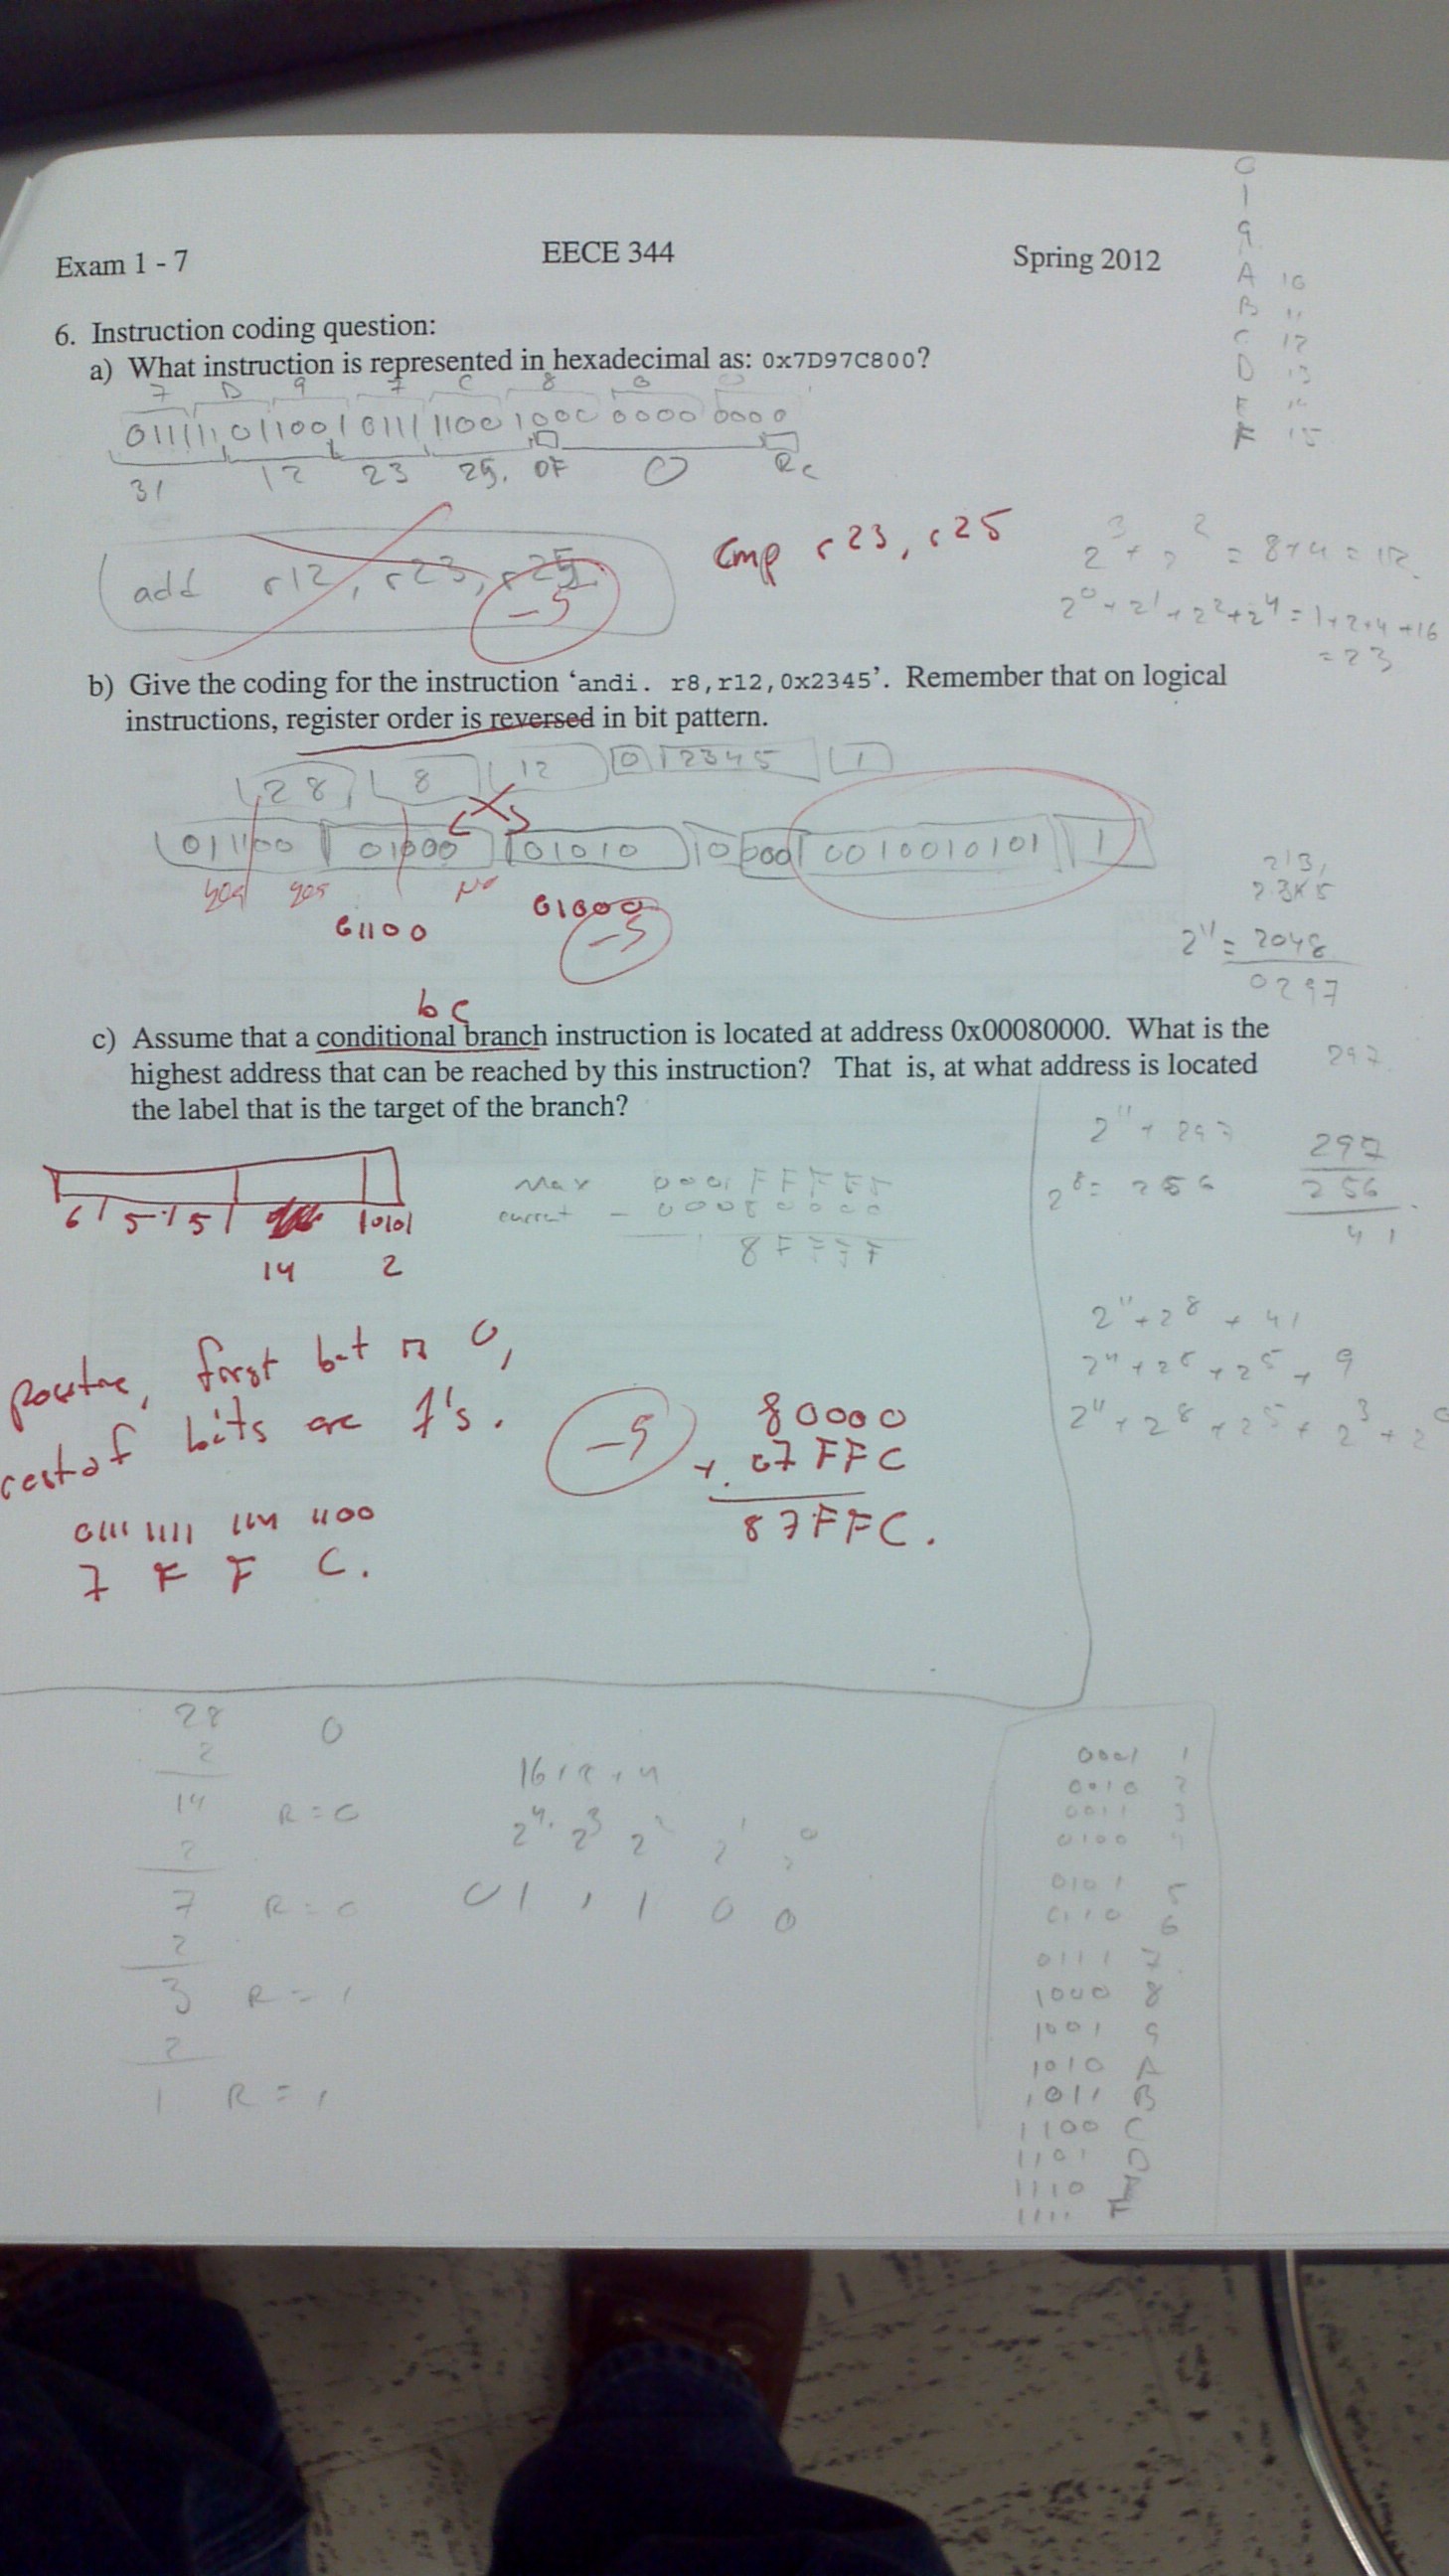 Exam 1 - 7 EECE 344 Spring 2012
6. Instruction coding question:
a) What instruction is represented in hexadecimal as: 0x7D97C800?
7 D 9 7 C 8 0 0
011111 01100 10111 11001 000 0000 0000
31 12 23 25. OF 0 Rc
add r12, r23, r25
-5
cmp r23, r25
2^3 + 2^2 = 8+4 = 12
2^0 + 2^1 + 2^2 + 2^4 = 1+2+4+16
= 23
A 10
B 11
C 12
D 13
F 15
b) Give the coding for the instruction ‘andi. r8,r12,0x2345’. Remember that on logical
instructions, register order is reversed in bit pattern.
28 8 12 0 2345 1
011100 01000 01010 0010010101 1
yes yes No
01100 01000
-5
2^11 = 2048
0297
bc
c) Assume that a conditional branch instruction is located at address 0x00080000. What is the
highest address that can be reached by this instruction? That is, at what address is located
the label that is the target of the branch?
297
6 5 5 |0|0|
14 2
Max 0001FFFFF
current - 00080000
8FFFF
2^11 + 297
2^8 = 256
297
256
41
2^11 + 2^8 + 41
2^11 + 2^8 + 2^5 + 9
2^11 + 2^8 + 2^5 + 2^3 + 2^0
positive, first bit is 0,
rest of bits are 1's.
0111 1111 1111 1100
7 F F C.
-5
80000
+ 07FFC
87FFC.
28 0
2
14 R = 0
2
7 R = 0
2
3 R = 1
2
1 R = 1
16+8+4
2^4 2^3 2^2 2^1 2^0
0 1 1 1 0 0
0001 1
0010 2
0011 3
0100 4
0101 5
0110 6
0111 7
1000 8
1001 9
1010 A
1011 B
1100 C
1101 D
1110
1111 F